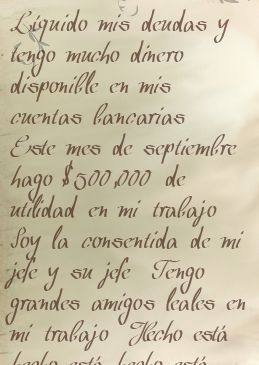 Liquido mis deudas y
tengo mucho dinero
disponible en mis
cuentas bancarias
Este mes de septiembre
hago $500,000 de
utilidad en mi trabajo
Soy la consentida de mi
jefe y su jefe Tengo
grandes amigos leales en
mi trabajo Hecho está
hecho está hecho está